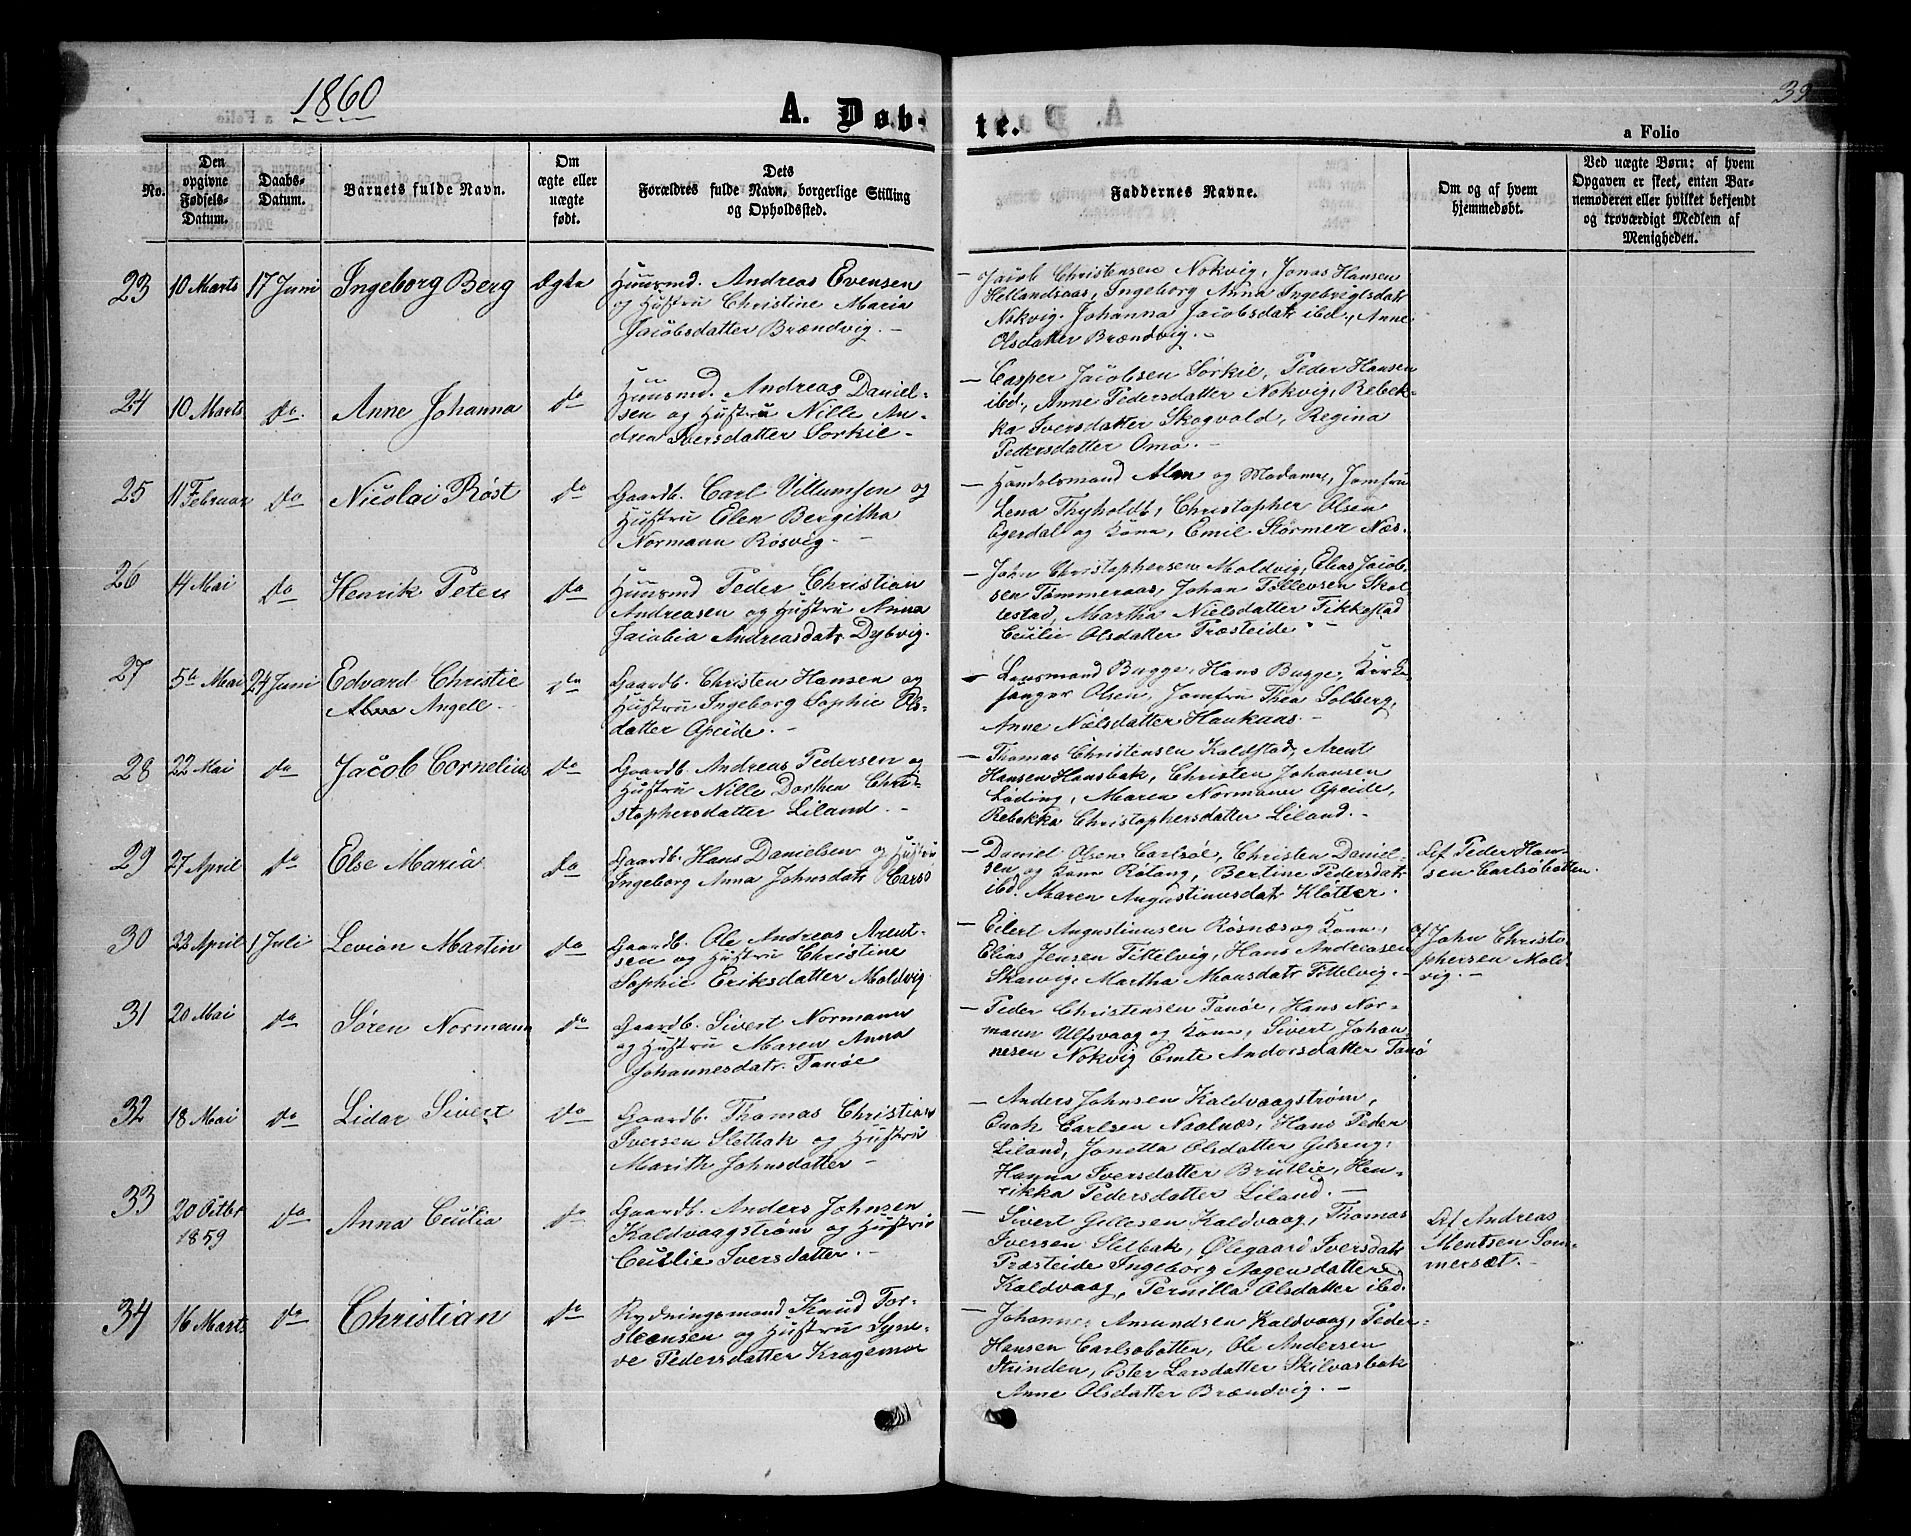 1860
A. Døb-
te.
39
a Folio
No.
Den
opgivne
Fødsels-
Datum.
Daabs-
Datum.
Barnets fulde Navn.
Om
ægte eller
uægte
født.
Dets
Forældres fulde Navn, borgerlige Stilling
og Opholdssted.
Faddernes Navne.
Om og af hvem
hjemmedøbt.
Ved uægte Børn: af hvem
Opgaven er skeet, enten Bar-
nemoderen eller hvilket bekjendt
og troværdigt Medlem af
Menigheden.
23 10 Marts 17 Juni Ingeborg Berg Ægte
Huusmd. Andreas Evensen
og Hustru Christine Maria
Jacobsdatter Brændvig. –
– Jacob Christensen Nokvig, Jonas Hansen
Hellandsaas, Ingeborg Anna Ingebrigtsdatr
Nokvig. Johanna Jacobsdatr ibd., Anne
Olsdatter Brændvig. –
24 10 Marts do. Anne Johanna do
Huusmd. Andreas Daniel-
sen og Hustru Nille An-
drea Iversdatter Sørkil –
– Casper Jacobsen Sørkil, Peder Hansen
ibd, Anne Pedersdatter Nokvig, Rebek-
ka Iversdatter Skogvold, Regina
Pedersdatter Omø. –
25 11 Februar do Nicolai Røst do
Gaardb. Carl Villumsen og
Hustru Elen Bergitha
Normann Røsvig. –
– Handelsmand Alm og Madame, Jomfru
Lena Thyholdt, Christopher Olsen
Egesdal og Kone, Emil Størmer Næs.
26 14 Mai do Henrik Peter do
Huusmd Peder Christian
Andreasen og Hustru Anna
Jacobia Andreasdatr Dybvig.
– John Christophersen Moldvig, Elias Jacob-
sen Tømmeraas, Johan Tollevsen Skol-
lestad, Martha Nielsdatter Fikkestad
Cecilie Olsdatter Præsteide –
27 5te Mai 24 Juni Edvard Christie do
Angell. –
Gaardb. Christen Hansen og
Hustru Ingeborg Sophie Ols-
datter Opeide. –
– Lensmand Bugge, Hans Bugge, Kirke
sanger Olsen, Jomfru Thea Solberg,
Anne Nielsdatter Haukaas. –
28 22 Mai do Jacob Cornelius do
Gaardb. Andreas Pedersen og
Hustru Nille Dorthea Chri-
stophersdatter Liland. –
– Thomas Christensen Kaldstad, Arent
Hansen Hansbak, Christen Johansen
Løding, Maren Normann Opeide,
Rebekka Christophersdatter Liland. –
29 27 April do Else Maria do
Gaardb. Hans Danielsen og Hustru
Ingeborg Anna Johnsdatr Carls
– Daniel Olsen Carlsøe, Christen Daniel-
sen og Kone Røtang, Bertine Pedersdatr
ibd. Maren Augustinusdatr Kløtter.
Af Peder Han-
sen Carlsøbotten.
30 22 April 1 Juli Levion Martin do
Gaardb. Ole Andreas Arent-
sen og Hustru Christine
Sophie Eriksdatter Moldvig
– Eilert Augustinusen Røsnæs og Kone,
Elias Jensen Tittelvig, Hans Andreasen
Skarvig, Martha Monsdatr Tittelvig. –
af John Christo-
phersen Mold-
vig. –
31 20 Mai do Søren Normann do
Gaardb. Sivert Normann
og Hustru Maren Anna
Johannesdatr. Tanøe
– Peder Christensen Tanøe, Hans Nor-
mann Ulfsvaag og Kone, Sivert Johan-
nesen Nokvig Emte Andersdatter Tanø
32 18 Mai do Lidar Sivert do
Gaardb. Thomas Christian
Iversen Sletbak og Hustru
Marith Johnsdatter –
– Anders Johnsen Kaldvaagstrøm,
Enok Carlsen Naalnæs, Hans Peder
Liland, Jonetta Olsdatter Gilseng,
Hanna Iversdatter Brutlie, Hen-
rikka Pedersdatter Liland. –
33 20 Octbr do Anna Cecilia do
1859
Gaardb. Anders Johnsen
Kaldvaagstrøm og Hustru
Cecilie Iversdatter. –
– Sivert Gillesen Kaldvaag, Thomas
Iversen Sletbak, Ølegaard Iversdatr
Præsteide Ingeborg Aagensdatter
Kaldvaag, Pernilla Olsdatter ibd.
Af Andreas
Mentsen Som-
mersæt. –
34 16 Marts do Christian do
Rydningsmand Knud Tor-
steensen og Hustru Syne-
ve Pedersdatter Kragemoe
– Johannes Amundsen Kaldvaag, Peder
Hansen Carlsøbotten, Ole Andersen
Strinden, Ester Larsdatter Skilvasbak
Anne Olsdatter Brændvig. –